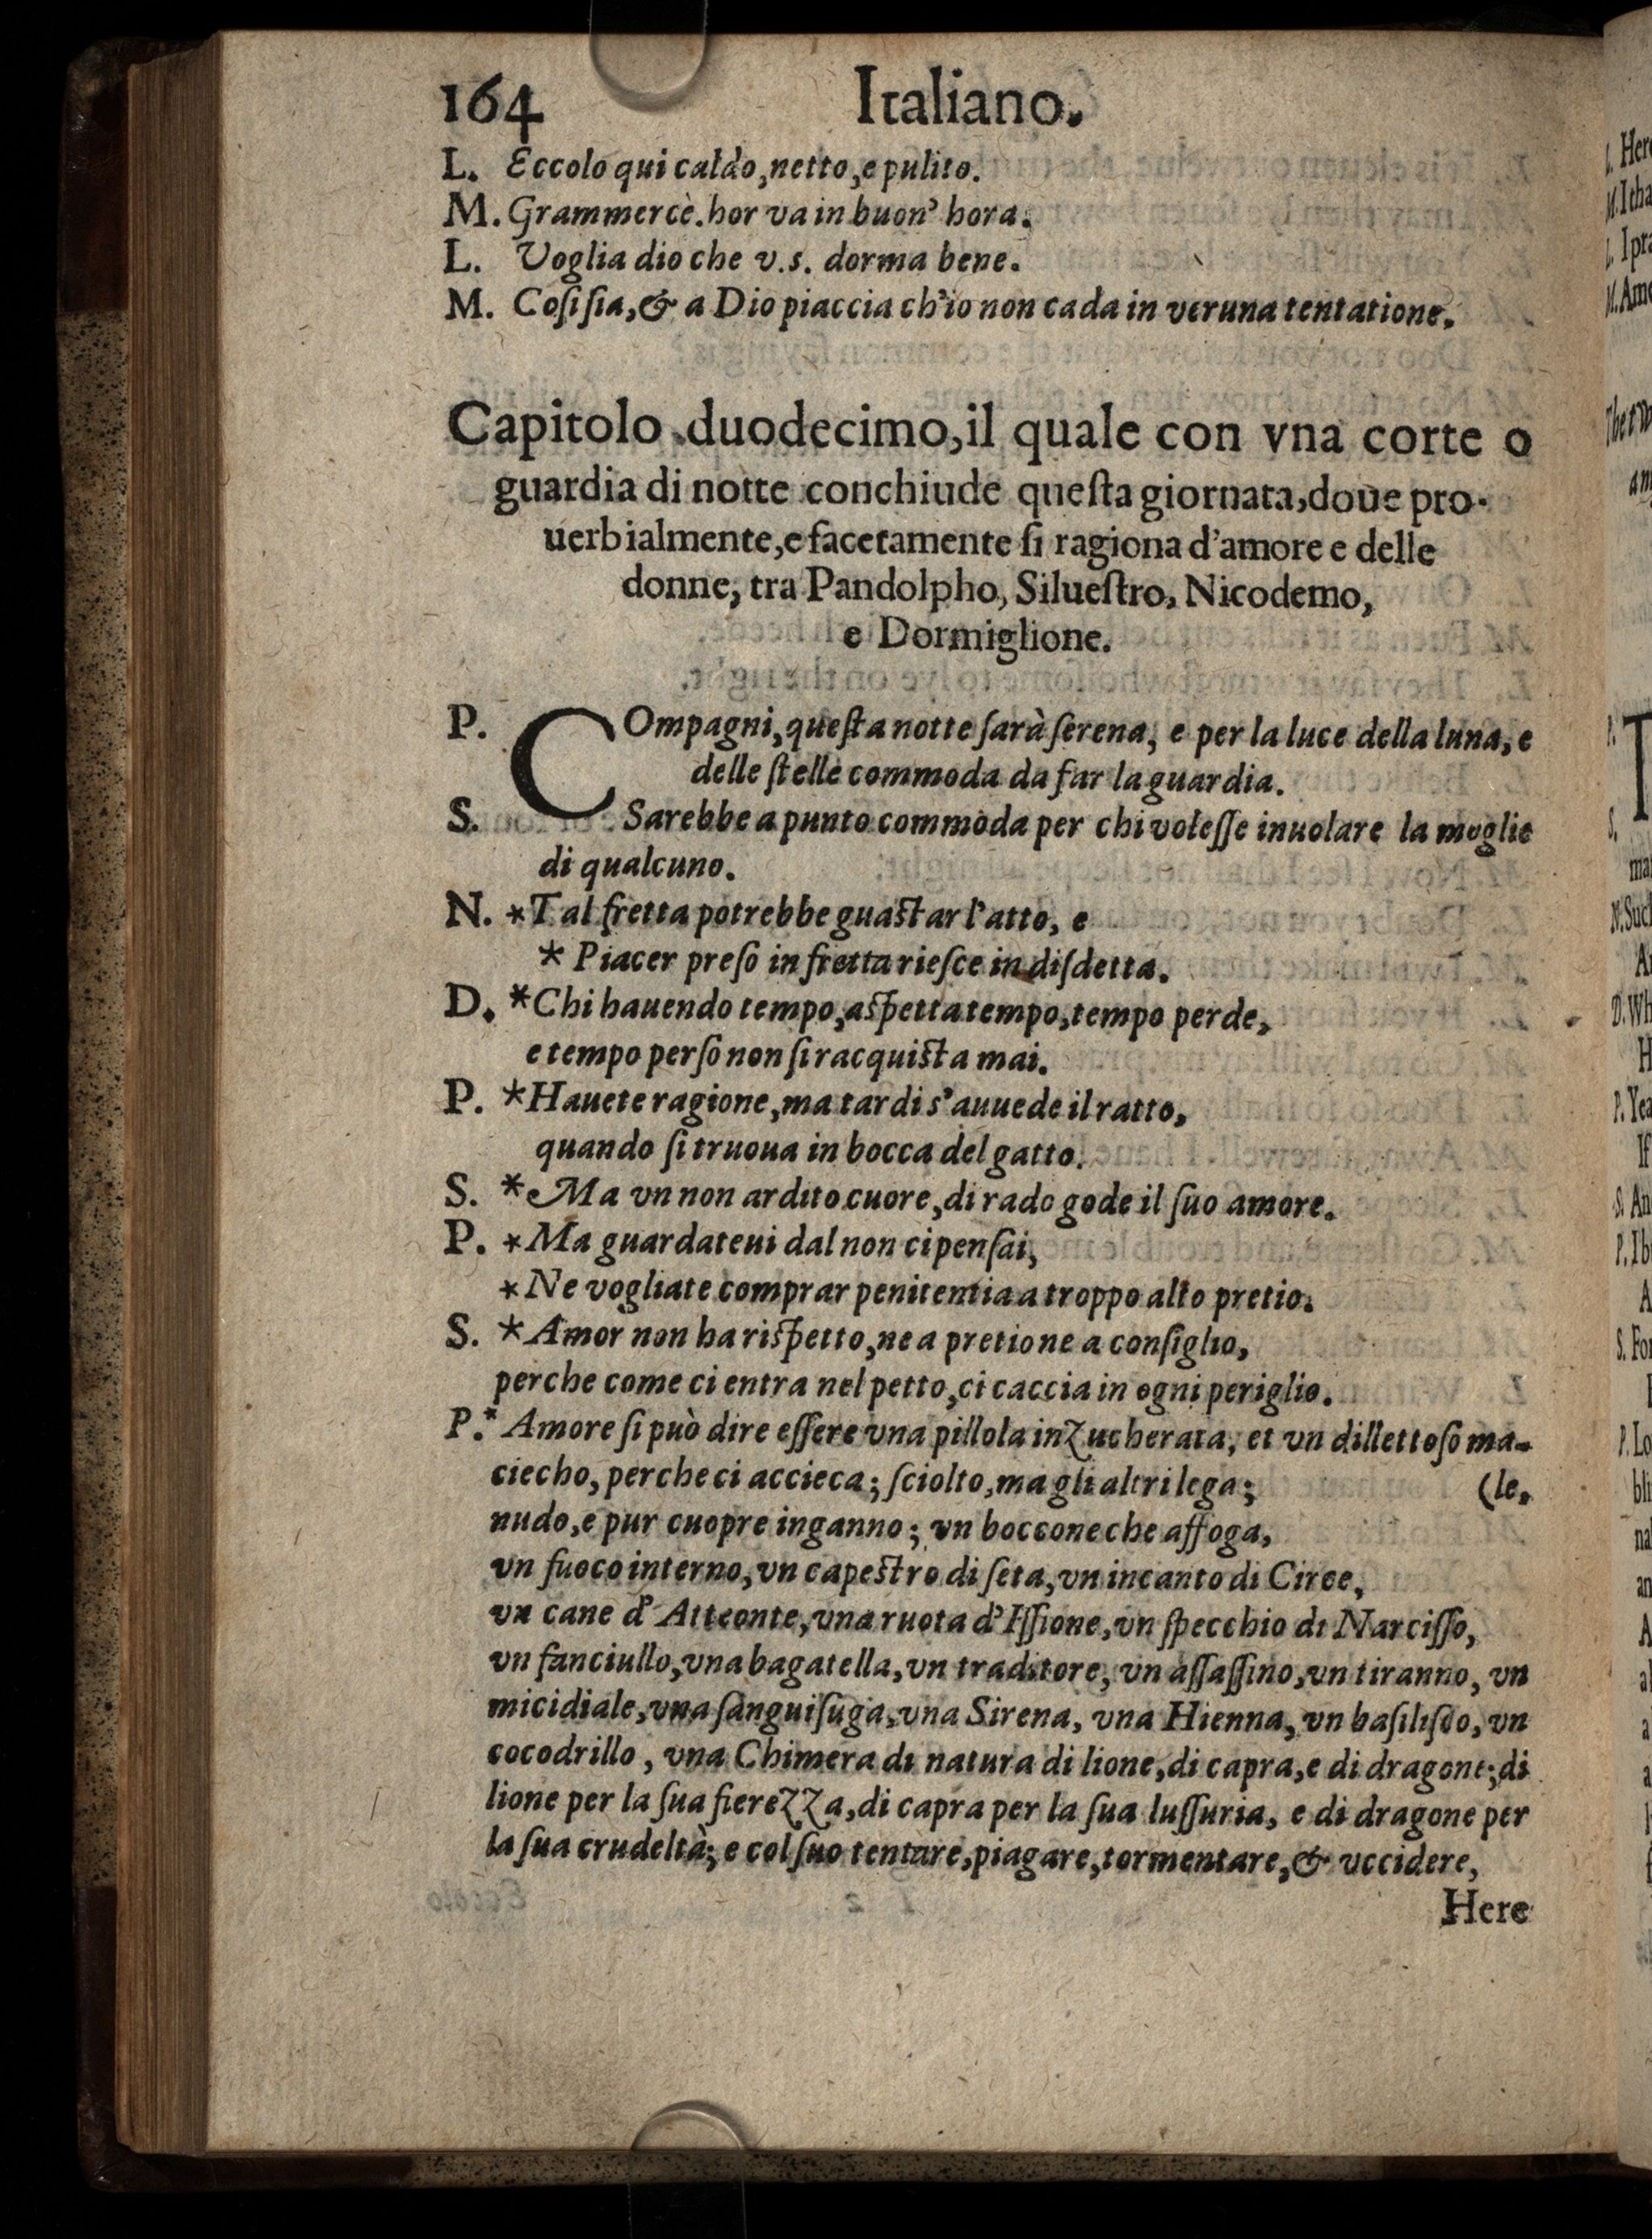 164 Italiano.
L. Eccolo qui caldo, netto, e pulito.
M. Grammercè. hor va in buon' hora.
L. Voglia dio che v.s. dorma bene.
M. Cosi sia, & a Dio piaccia ch'io non cada in veruna tentatione.
Capitolo duodecimo, il quale con vna corte o
guardia di notte conchiude questa giornata, doue pro-
uerbialmente, e facetamente si ragiona d'amore e delle
donne, tra Pandolpho, Siluestro, Nicodemo,
e Dormiglione.
P. COmpagni, questa notte sarà serena, e per la luce della luna, e
delle stelle commoda da far la guardia.
S. Sarebbe a punto commoda per chi volesse inuolare la moglie
di qualcuno.
N. *Tal fretta potrebbe guastar l'atto, e
* Piacer preso in fretta riesce in disdetta.
D. *Chi hauendo tempo, aspetta tempo, tempo perde,
e tempo perso non si racquista mai.
P. *Hauete ragione, ma tardi s'auuede il ratto,
quando si truoua in bocca del gatto.
S. *Ma vn non ardito cuore, di rado gode il suo amore.
P. *Ma guardateui dal non ci pensai,
*Ne vogliate comprar penitentia a troppo alto pretio.
S. *Amor non ha rispetto, ne a pretio ne a consiglio,
perche come ci entra nel petto, ci caccia in ogni periglio.
P.* Amore si può dire essere vna pillola inzucherata, et vn dillettoso ma-
ciecho, perche ci accieca; sciolto, ma gli altri lega; (le,
nudo, e pur cuopre inganno; vn boccone che affoga,
vn fuoco interno, vn capestro di seta, vn incanto di Circe,
vn cane d'Atteonte, vna ruota d'Issione, vn specchio di Narcisso,
vn fanciullo, vna bagatella, vn traditore, vn assassino, vn tiranno, vn
micidiale, vna sanguisuga, vna Sirena, vna Hienna, vn basilisco, vn
cocodrillo, vna Chimera di natura di lione, di capra, e di dragone; di
lione per la sua fierezza, di capra per la sua lussuria, e di dragone per
la sua crudeltà; e col suo tentare, piagare, tormentare, & vccidere,
Here